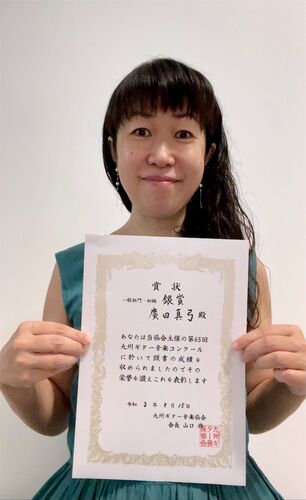 賞状
一般部門・初級 銀賞
廣田真弓 殿
あなたは当協会主催の第65回
九州ギター音楽コンクール
に於いて頭書の成績を
収められましたのでその
栄誉を讃えこれを表彰します
令和 3年 8月 15日
九州ギター音楽協会
会長 山口 修